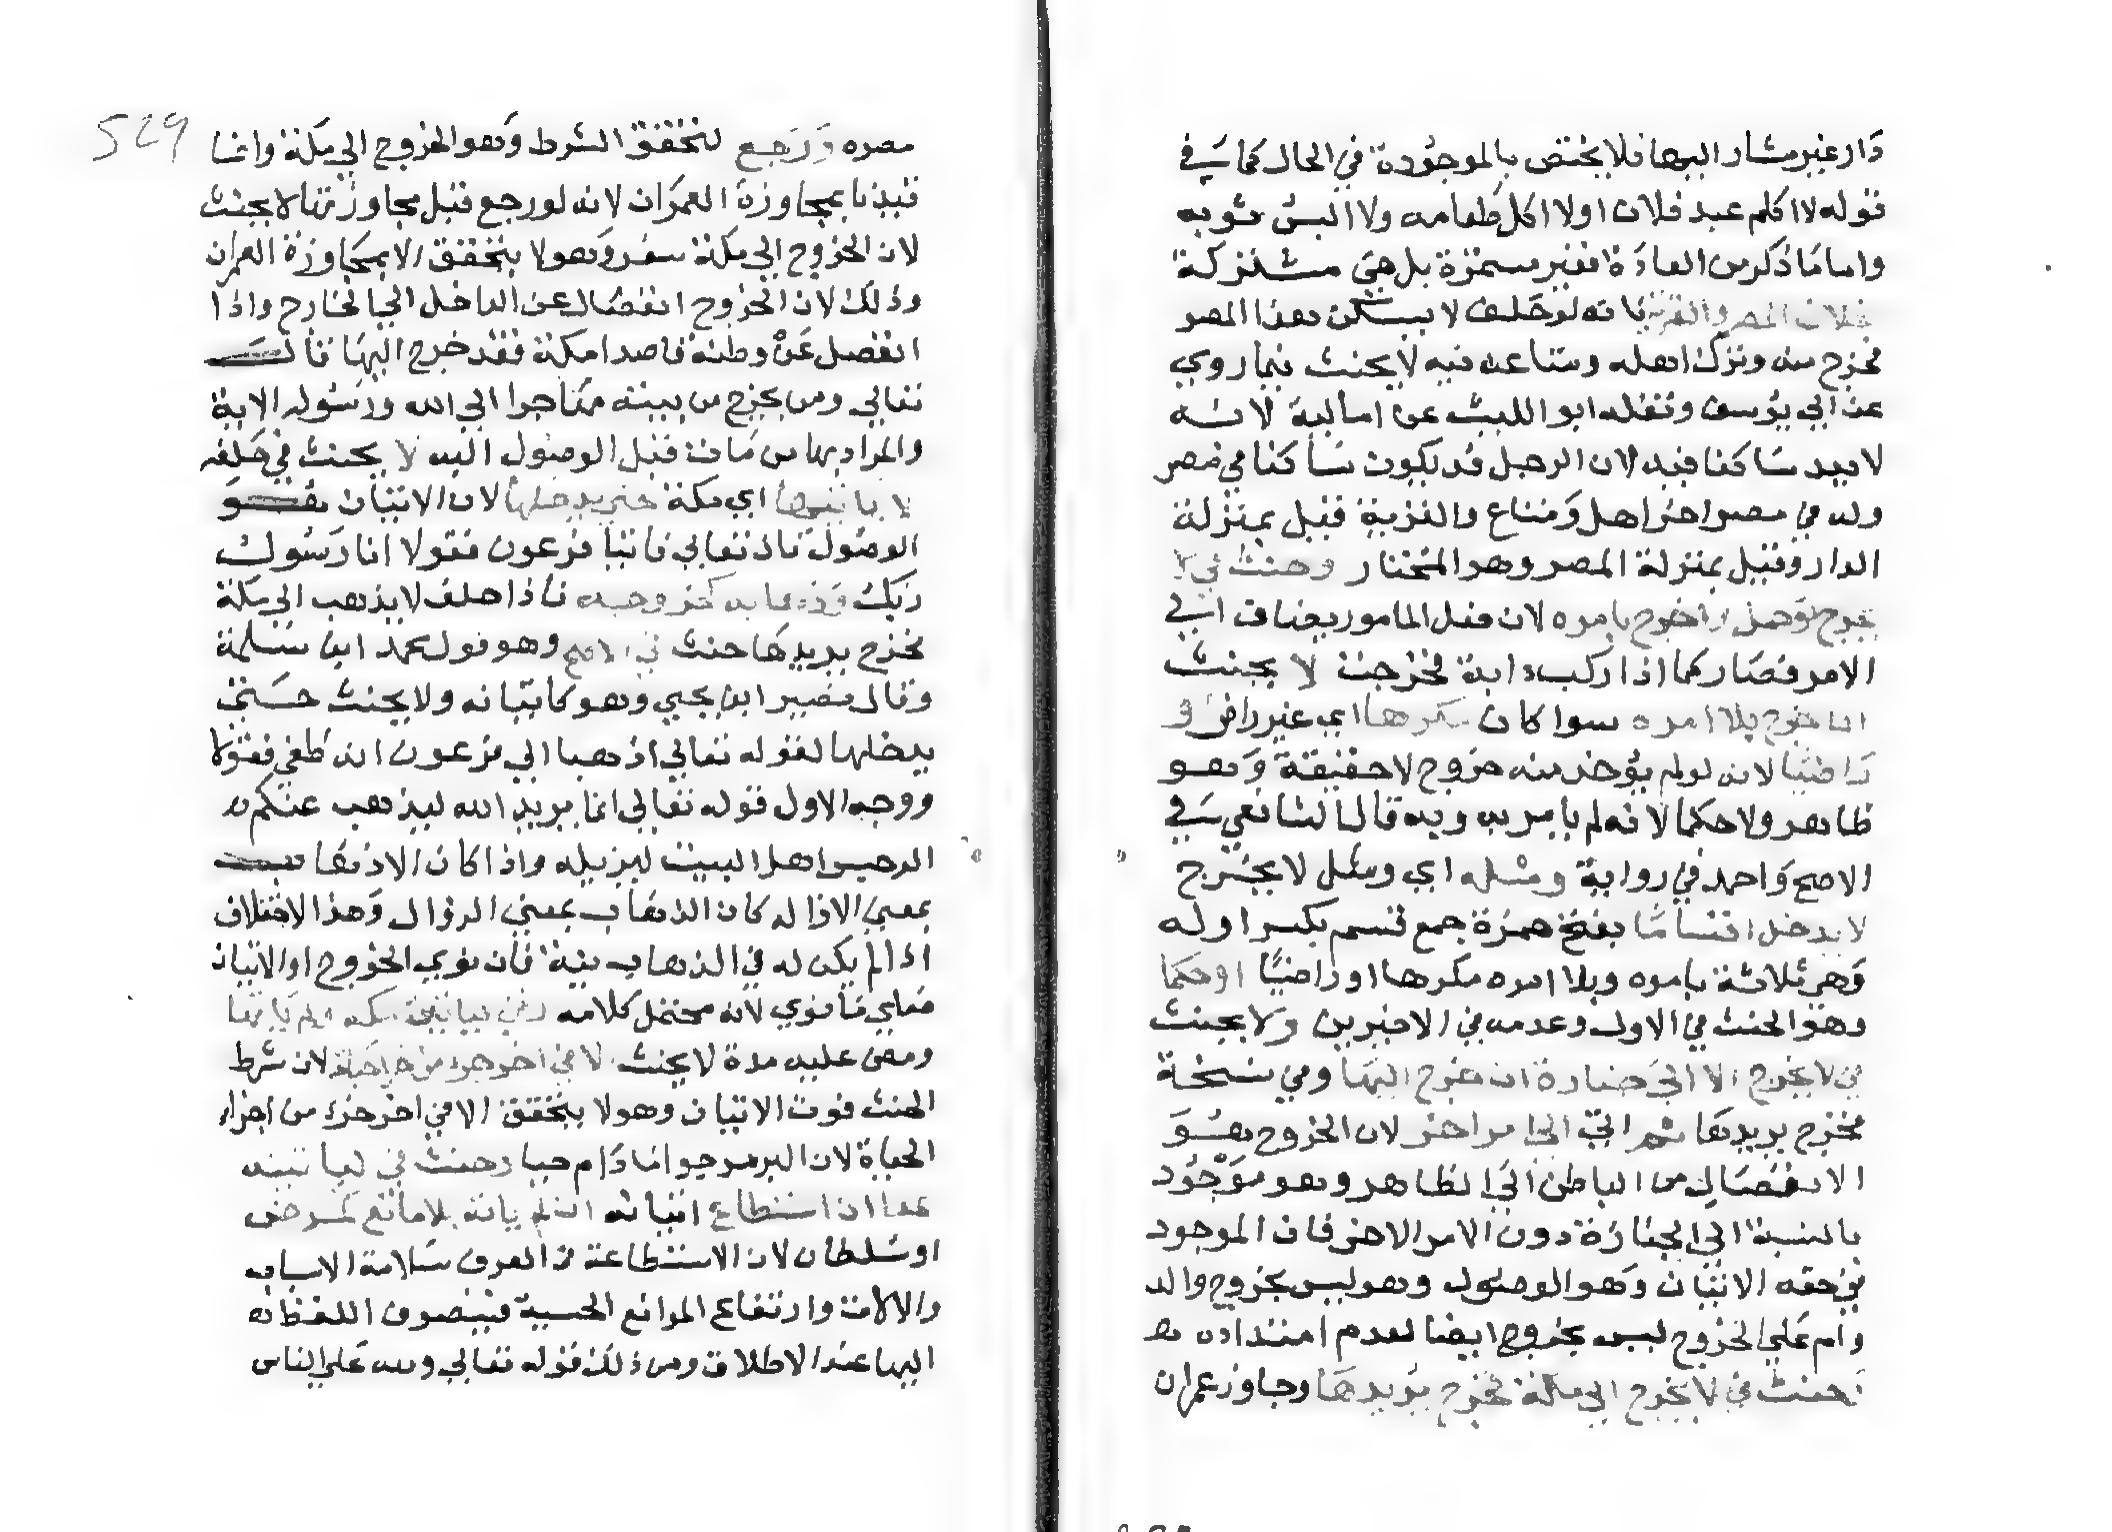 دار غير مشار اليها فلا يختص بالموجودة في الحال كما في
قوله لا اكلم عبد فلان او لا اكل طعامه ولا البس ثوبه
واما ما ذكر من العادة فغير مستمرة بل هي مشتركة
بخلاف المصر والقرية فانه لو حلف لا يسكن هذا المصر
فخرج منه وترك اهله ومتاعه فيه لا يحنث فيما روي
عن ابي يوسف ونقله ابو الليث عن اماليه لانه
لا يعد ساكنا فيه لان الرجل قد يكون ساكنا في مصر
وله في مصر اخر اهل ومتاع والقرية قيل بمنزلة
الدار وقيل بمنزلة المصر وهو المختار وحنث في لا
يخرج لو حمل واخرج بامره لان فعل المامور يضاف الي
الامر فصار كما اذا ركب دابة فخرجت لا يحنث
ان اخرج بلا امره سوا كان مكرها اي غير راض او
راضيا لانه لو لم يوجد منه خروج لا حقيقة وهو
ظاهر ولا حكما لانه لم يامر به وبه قال الشافعي في
الاصح واحمد في رواية ومثله اي ومثل لا يخرج
لا يدخل اقساما بفتح همزة جمع قسم بكسر اوله
وهي ثلاثة بامره وبلا امره مكرها او راضيا او حكما
وهو الحنث في الاول وعدمه في الاخيرين ولا يحنث
في لا يخرج الا الي جنازة ان خرج اليها وفي نسخة
فخرج يريدها ثم اتي الي امر اخر لان الخروج هو
الانفصال من الباطن الي الظاهر وهو موجود
بالنسبة الي الجنازة دون الامر الاخر فان الموجود
في حقه الاتيان وهو الوصول وهو ليس بخروج والد
وام علي الخروج ليس بخروج ايضا لعدم امتداده
حنث في لا يخرج الي مكة فخرج يريدها وجاوز عمران
529
مصره ورجع لتحقق الشرط وهو الخروج الي مكة وانما
قيدنا بمجاوزة العمران لانه لو رجع قبل مجاوزتها لا يحنث
لان الخروج الي مكة سفر وهو لا يتحقق الا بمجاوزة العمران
وذلك لان الخروج انفصال عن الداخل الي الخارج واذا
انفصل عن وطنه قاصدا مكة فقد خرج اليها قال
تعالي ومن يخرج من بيته مهاجرا الي الله ورسوله الاية
والمراد بها من مات قبل الوصول اليه لا يحنث في حلفه
لا ياتيها اي مكة حتي يدخلها لان الاتيان هو
الوصول قال تعالي فاتيا فرعون فقولا انا رسول
ربك وذهابه كخروجه فاذا حلف لا يذهب الي مكة
فخرج يريدها حنث في الاصح وهو قول محمد ابن سلمة
وقال نصير ابن يحيي وهو كاتيانه ولا يحنث حتي
يدخلها لقوله تعالي اذهبا الي فرعون انه طغي فقولا
ووجه الاول قوله تعالي انما يريد الله ليذهب عنكم
الرجس اهل البيت ليزيله واذا كان الاذهاب
بمعني الازاله كان الذهاب بمعني الزوال وهذا الاختلاف
اذا لم يكن له في الذهاب نية فان نوي الخروج او الاتيان
فعلي ما نوي لانه محتمل كلامه وفي لياتين مكه ولم ياتها
ومضي عليه مدة لا يحنث الا في اخر جزء من حياته لان شرط
الحنث فوت الاتيان وهو لا يتحقق الا في اخر جزء من اجزاء
الحياة لان البر مرجو ما دام حيا وحنث في لياتينه
غدا ان استطاع اتيانه ان لم ياته بلا مانع كمرض
او سلطان لان الاستطاعة في العرف سلامة الاسباب
والالات وارتفاع الموانع الحسية فينصرف اللفظ
اليها عند الاطلاق ومن ذلك قوله تعالي ولله علي الناس